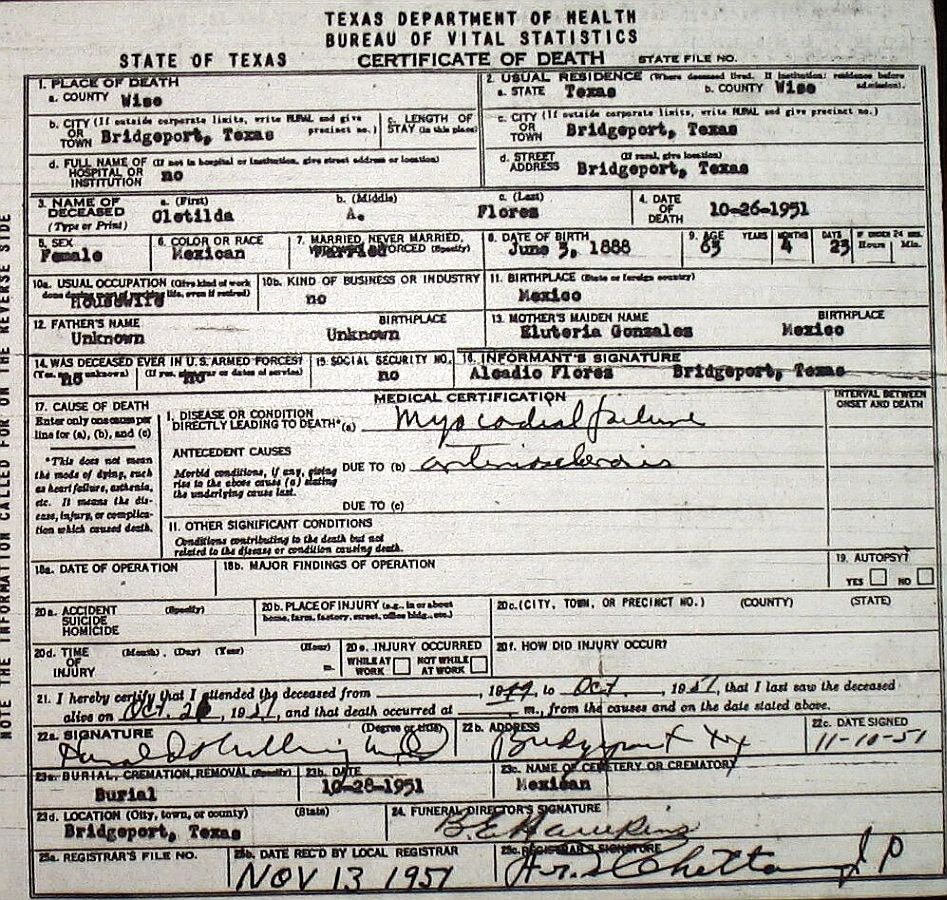 TEXAS DEPARTMENT OF HEALTH
BUREAU OF VITAL STATISTICS
STATE OF TEXAS CERTIFICATE OF DEATH STATE FILE NO.
1. PLACE OF DEATH
a. COUNTY Wise
2. USUAL RESIDENCE (Where deceased lived. If institution: residence before admission).
a. STATE Texas b. COUNTY Wise
b. CITY (If outside corporate limits, write RURAL and give precinct no.)
OR TOWN Bridgeport, Texas
c. LENGTH OF STAY (in this place)
c. CITY (If outside corporate limits, write RURAL and give precinct no.)
OR TOWN Bridgeport, Texas
d. FULL NAME OF (If not in hospital or institution, give street address or location)
HOSPITAL OR INSTITUTION no
d. STREET ADDRESS (If rural, give location)
Bridgeport, Texas
3. NAME OF DECEASED (Type or Print)
a. (First) b. (Middle) c. (Last)
Clotilda A. Flores
4. DATE OF DEATH 10-26-1951
5. SEX
Female
6. COLOR OR RACE
Mexican
7. MARRIED, NEVER MARRIED, WIDOWED, DIVORCED (Specify)
Married
8. DATE OF BIRTH
June 3, 1888
9. AGE YEARS MONTHS DAYS IF UNDER 24 HRS. Hours Min.
63 4 23
10a. USUAL OCCUPATION (Give kind of work done during most of working life, even if retired)
Housewife
10b. KIND OF BUSINESS OR INDUSTRY
no
11. BIRTHPLACE (State or foreign country)
Mexico
12. FATHER'S NAME BIRTHPLACE
Unknown Unknown
13. MOTHER'S MAIDEN NAME BIRTHPLACE
Eluteria Gonzales Mexico
14. WAS DECEASED EVER IN U.S. ARMED FORCES?
(Yes, no, unknown) (If yes, give war or dates of service)
no no
15. SOCIAL SECURITY NO.
no
16. INFORMANT'S SIGNATURE
Alcadio Flores Bridgeport, Texas
MEDICAL CERTIFICATION
INTERVAL BETWEEN ONSET AND DEATH
17. CAUSE OF DEATH
Enter only one cause per line for (a), (b), and (c)
*This does not mean the mode of dying, such as heart failure, asthenia, etc. It means the disease, injury, or complication which caused death.
I. DISEASE OR CONDITION DIRECTLY LEADING TO DEATH* (a) Myocardial failure
ANTECEDENT CAUSES
Morbid conditions, if any, giving rise to the above cause (a) stating the underlying cause last.
DUE TO (b) arteriosclerosis
DUE TO (c)
II. OTHER SIGNIFICANT CONDITIONS
Conditions contributing to the death but not related to the disease or condition causing death.
18a. DATE OF OPERATION
18b. MAJOR FINDINGS OF OPERATION
19. AUTOPSY?
YES NO
20a. ACCIDENT (Specify)
SUICIDE
HOMICIDE
20b. PLACE OF INJURY (e.g., in or about home, farm, factory, street, office bldg., etc.)
20c. (CITY, TOWN, OR PRECINCT NO.) (COUNTY) (STATE)
20d. TIME OF INJURY (Month) (Day) (Year) (Hour) m.
20e. INJURY OCCURRED
WHILE AT WORK NOT WHILE AT WORK
20f. HOW DID INJURY OCCUR?
21. I hereby certify that I attended the deceased from , 1949, to Oct , 1951, that I last saw the deceased
alive on Oct. 26, 1951, and that death occurred at m., from the causes and on the date stated above.
22a. SIGNATURE (Degree or title)
22b. ADDRESS
Bridgeport Tx
22c. DATE SIGNED
11-10-51
23a. BURIAL, CREMATION, REMOVAL (Specify)
Burial
23b. DATE
10-28-1951
23c. NAME OF CEMETERY OR CREMATORY
Mexican
23d. LOCATION (City, town, or county) (State)
Bridgeport, Texas
24. FUNERAL DIRECTOR'S SIGNATURE
B.E. Hawkins
25a. REGISTRAR'S FILE NO.
25b. DATE REC'D BY LOCAL REGISTRAR
NOV 13 1951
25c. REGISTRAR'S SIGNATURE
J P
NOTE THE INFORMATION CALLED FOR ON THE REVERSE SIDE